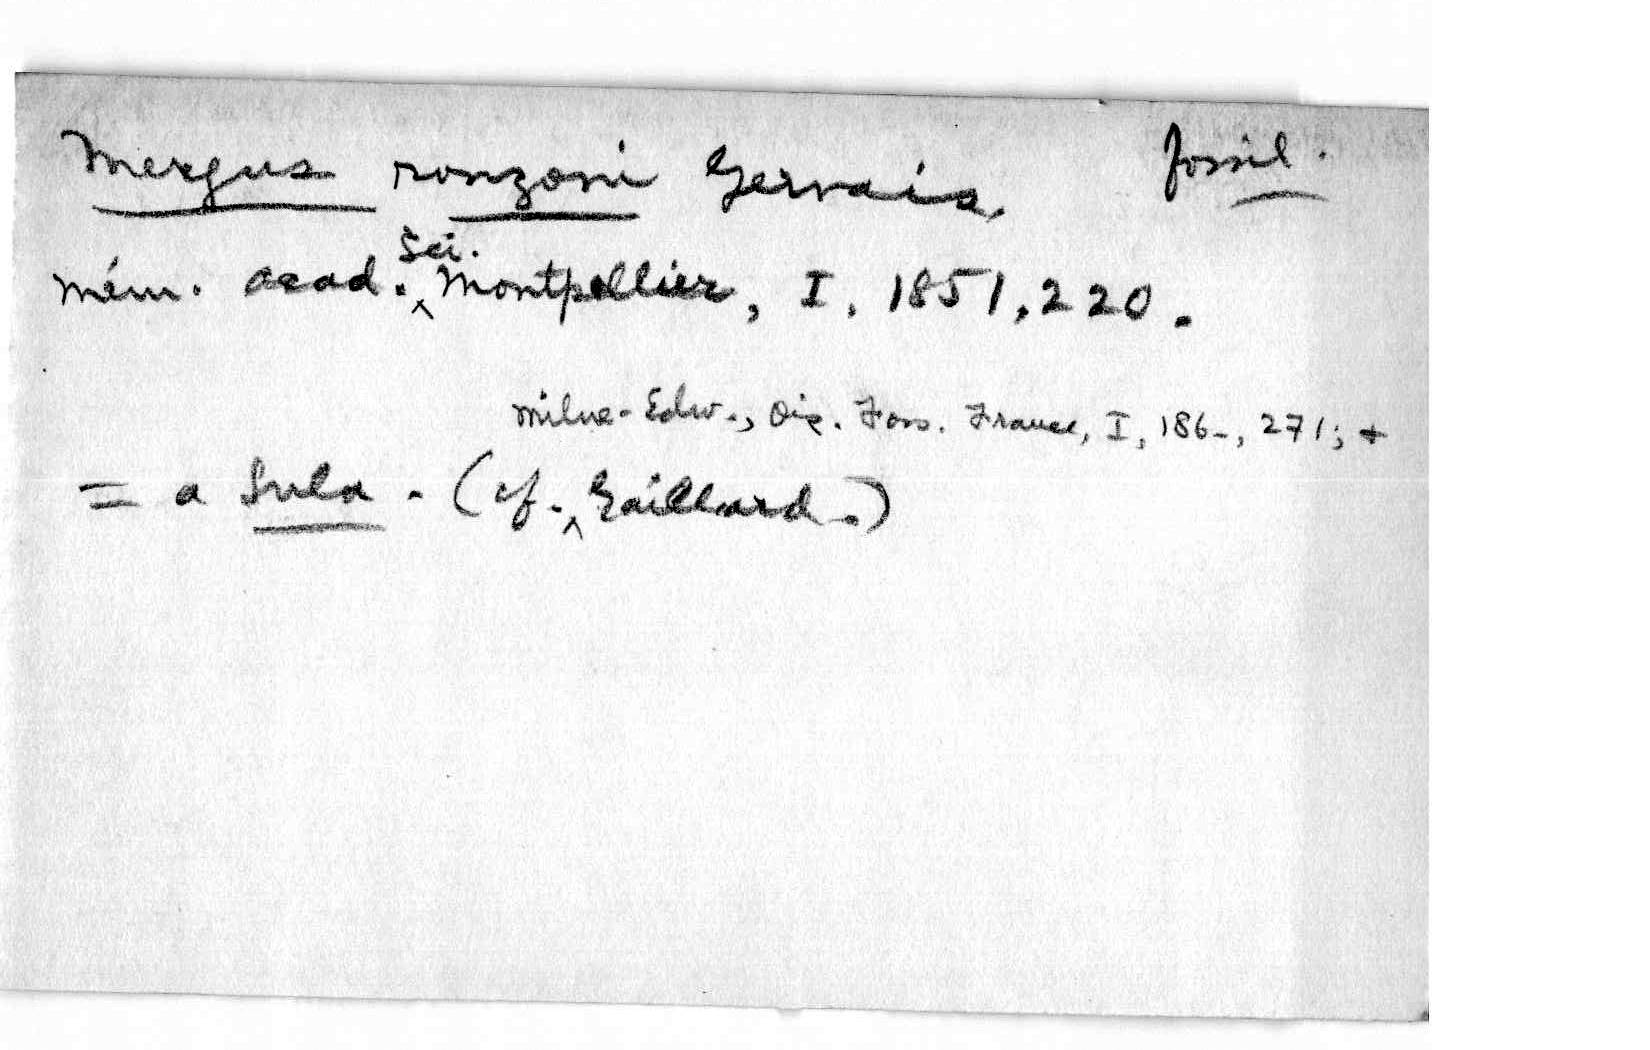 Mergus ronzoni Gervais, fossil.
Mém. acad. Sci. Montpellier, I, 1851, 220.
Milne-Edw., Ois. Foss. France, I, 186-, 271; +
= a Sula. (cf. Gaillard.)